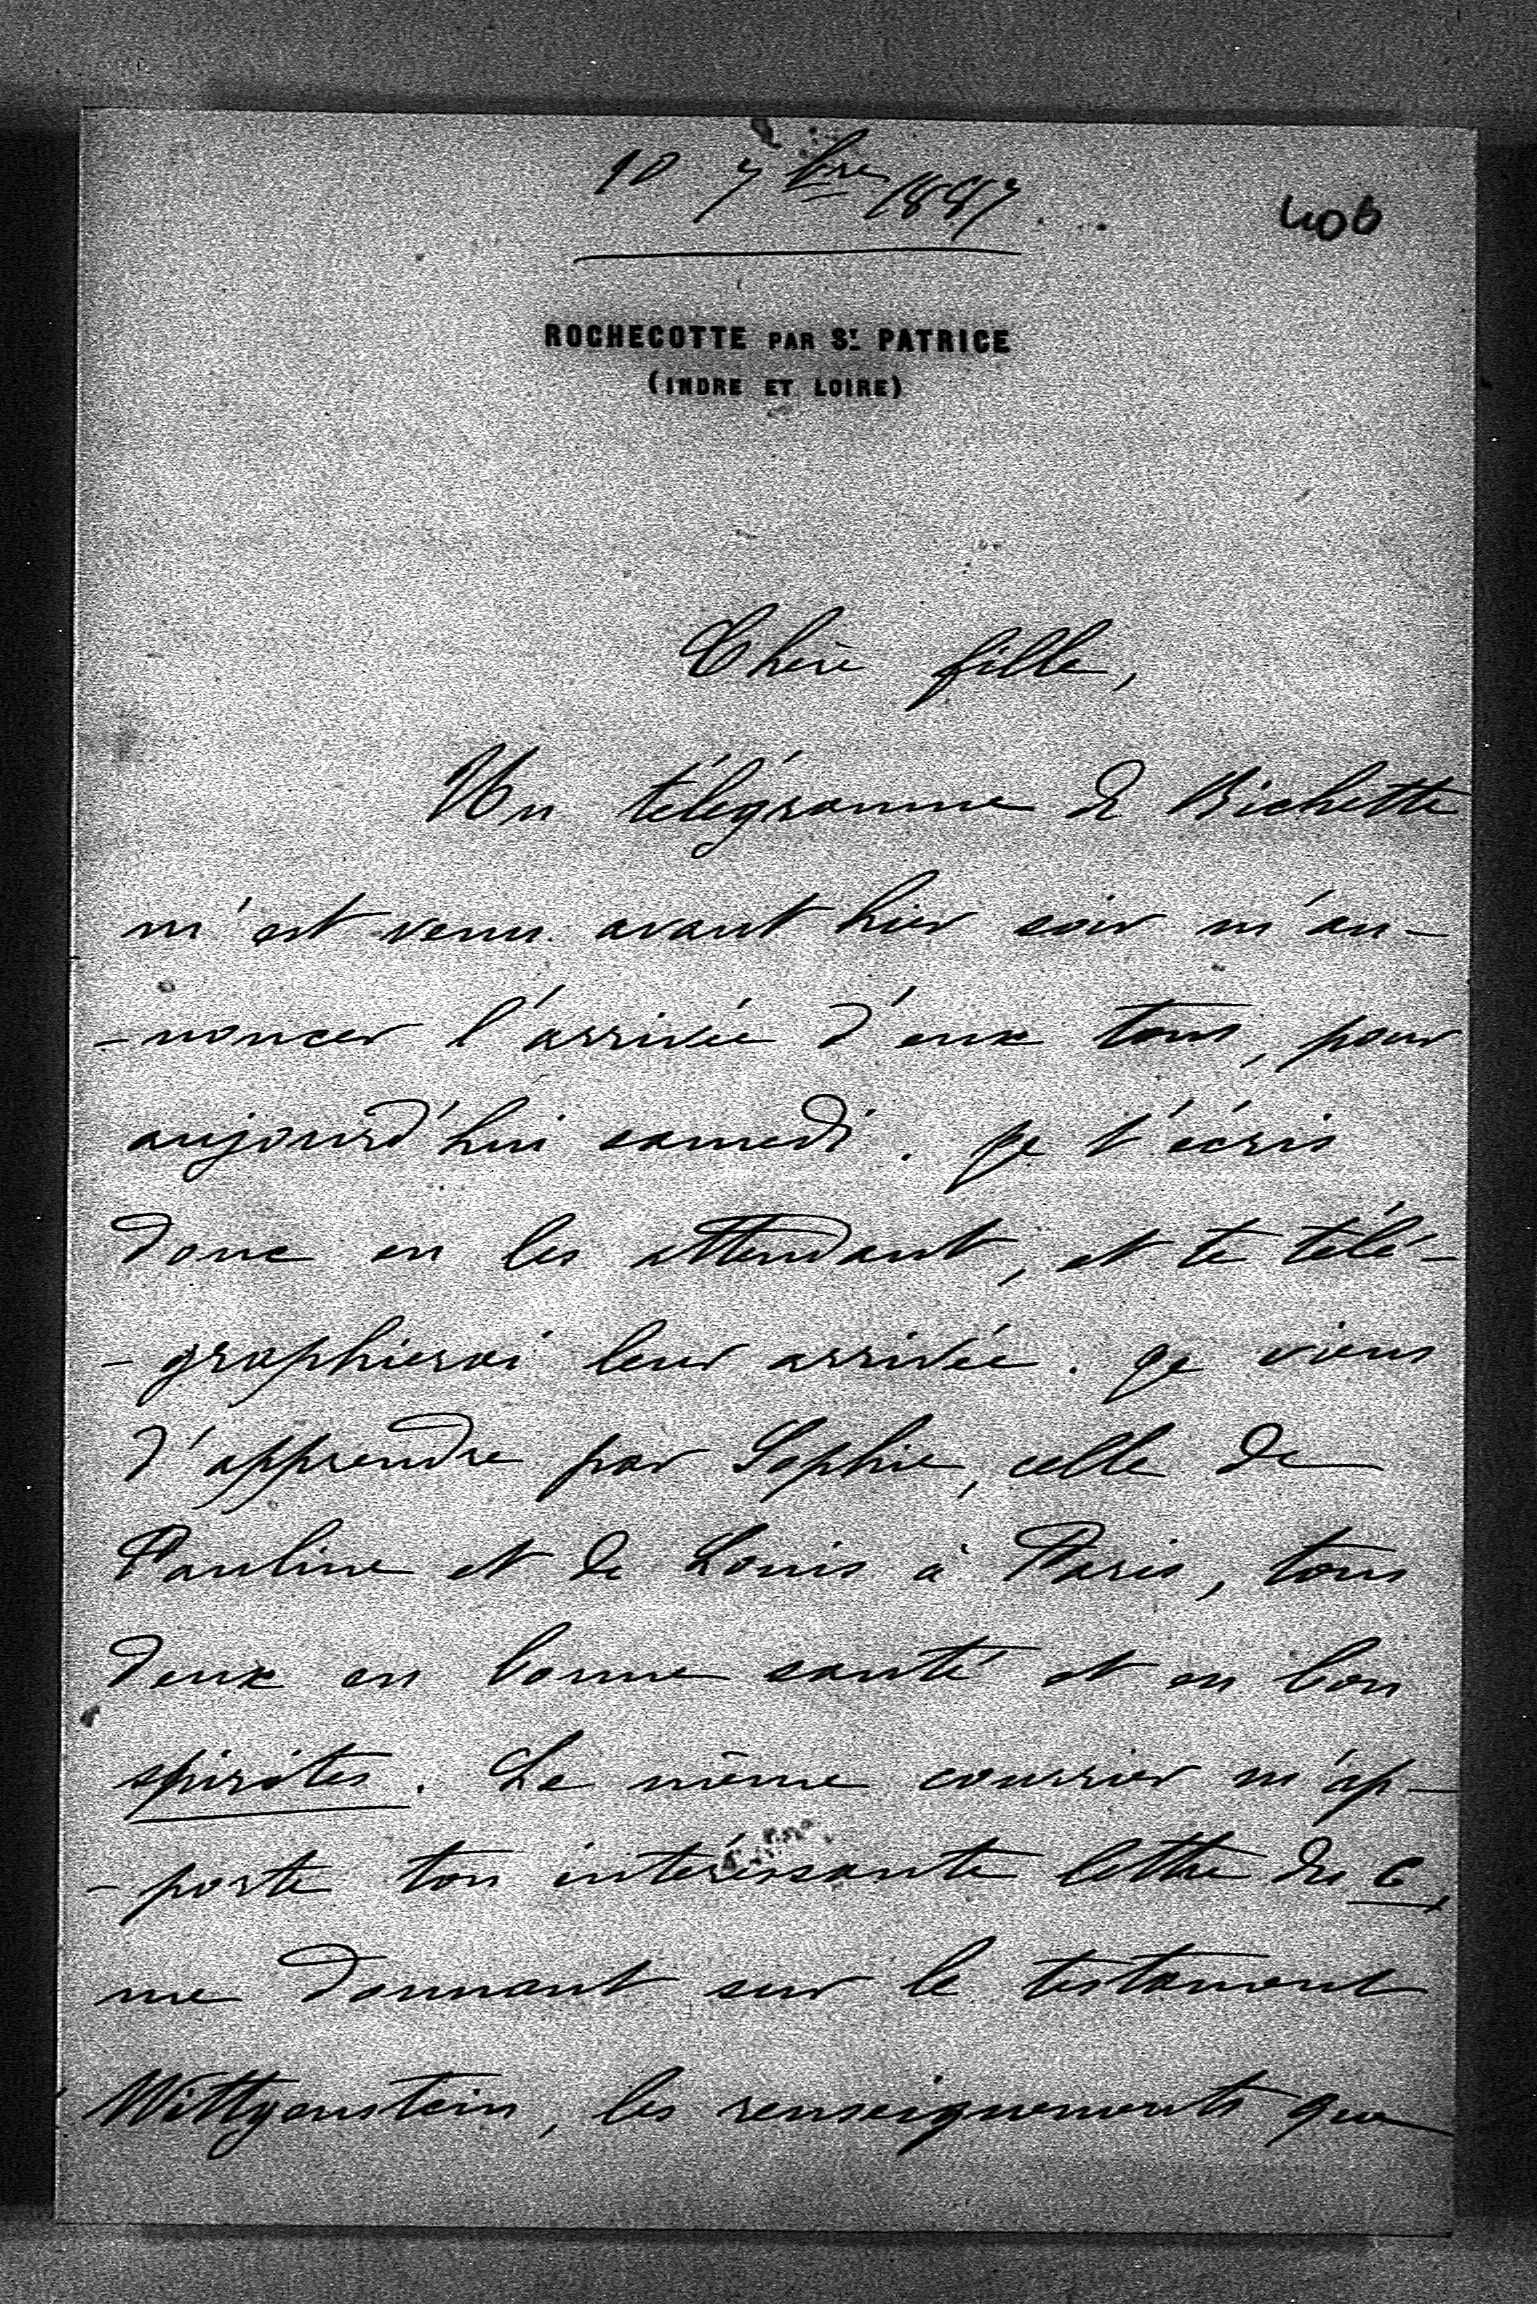 10 7bre 1887.
406
ROCHECOTTE PAR ST PATRICE
(INDRE ET LOIRE)
Chère fille,
Un télégramme de Bichette
m'est venu avant hier soir m'an-
-noncer l'arrivée d'eux tous, pour
aujourd'hui samedi. Je t'écris
donc en les attendant, et te télé-
-graphierai leur arrivée. Je viens
d'apprendre par Sophie, celle de
Pauline et de Louis à Paris, tous
deux en bonne santé et en bon
spirites. Le même courrier m'ap-
-porte ton intéressante lettre du 6,
me donnant sur le testament
Wittgenstein, les renseignements que